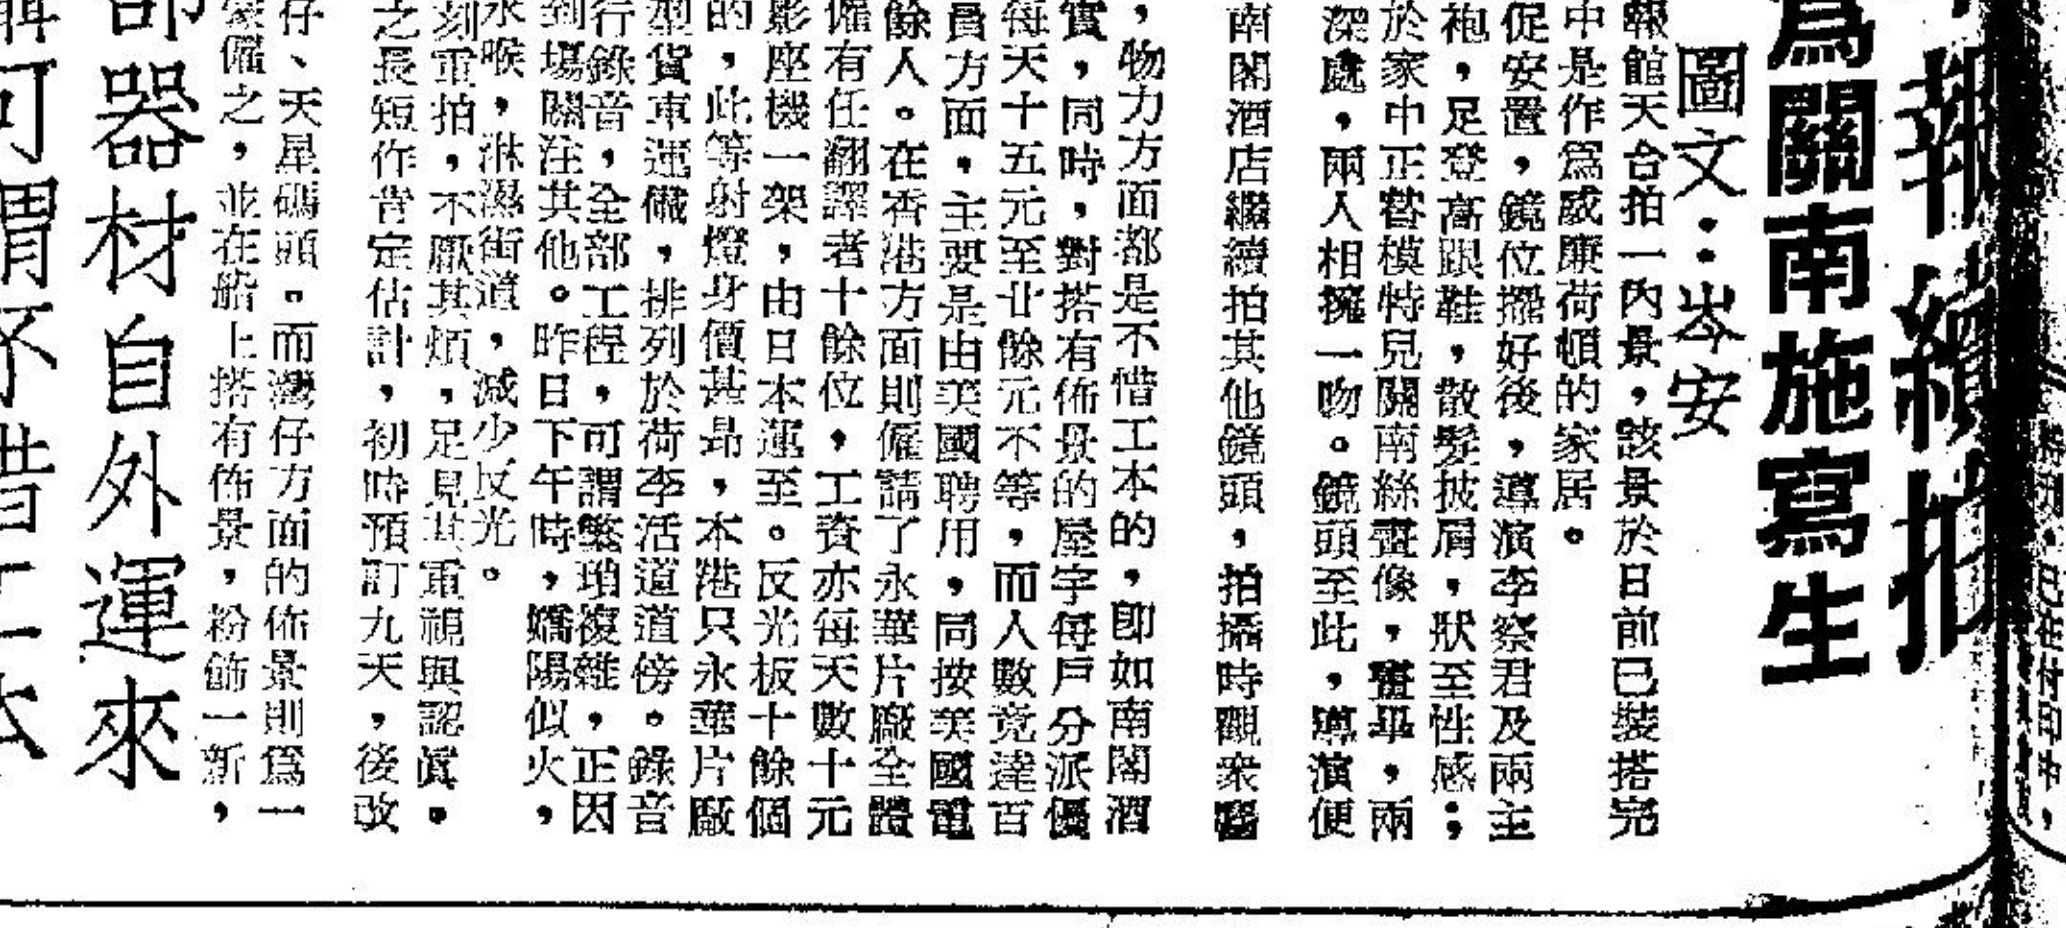 報續拍
爲關南施寫生
圖文：岑安
報館天台拍一內景，該景於日前已裝搭完
中是作爲威廉荷頓的家居。
促安置，鏡位擺好後，導演李察君及兩主
袍，足登高跟鞋，散髮披肩，狀至性感；
於家中正替模特兒關南絲畫像，畫畢，兩
深處，兩人相擁一吻。鏡頭至此，導演便
南閣酒店繼續拍其他鏡頭，拍攝時觀衆
，物力方面都是不惜工本的，卽如南閣酒
實，同時，對搭有佈景的屋宇每戶分派優
每天十五元至廿餘元不等，而人數竟達百
員方面，主要是由美國聘用，同按美國電
餘人。在香港方面則僱請了永華片廠全體
僱有任翻譯者十餘位，工資亦每天數十元
影座機一架，由日本運至。反光板十餘個
的，此等射燈身價甚昂，本港只永華片廠
型貨車運儎，排列於荷李活道道傍。錄音
行錄音，全部工程，可謂繁瑣複雜，正因
到塲關注其他。昨日下午時，驕陽似火，
水喉，淋濕街道，減少反光。
刻重拍，不厭其煩，足見其重視與認眞。
之長短作肯定估計，初時預訂九天，後改
仔、天星碼頭。而灣仔方面的佈景則爲一
僱之，並在船上搭有佈景，粉飾一新，
部器材自外運來
可謂不惜工本